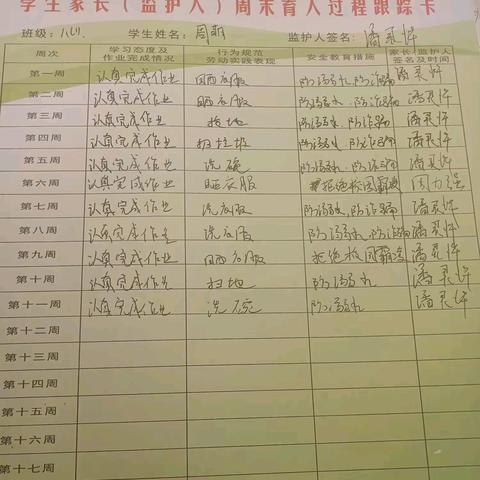 学生家长（监护人）周末育人过程跟踪卡
班级：八(1) 学生姓名：周 监护人签名：潘灵烊
周次 学习态度及作业完成情况 行为规范劳动实践表现 安全教育措施 家长/监护人签名及时间
第一周 认真完成作业 晒衣服 防溺水,防诈骗 潘灵烊
第二周 认真完成作业 晒衣服 防溺水,防诈骗 潘灵烊
第三周 认真完成作业 扫地 防溺水,防诈骗 潘灵烊
第四周 认真完成作业 扫垃圾 防溺水,防诈骗 潘灵烊
第五周 认真完成作业 洗碗 防溺水,防诈骗 潘灵烊
第六周 认真完成作业 晒衣服 拒绝校园霸凌 周力强
第七周 认真完成作业 洗衣服 防溺水,防诈骗 潘灵烊
第八周 认真完成作业 洗衣服 防溺水,防诈骗 潘灵烊
第九周 认真完成作业 晒衣服 拒绝校园霸凌 潘灵烊
第十周 认真完成作业 扫地 防溺水 潘灵烊
第十一周 认真完成作业 洗碗 防溺水 潘灵烊
第十二周
第十三周
第十四周
第十五周
第十六周
第十七周